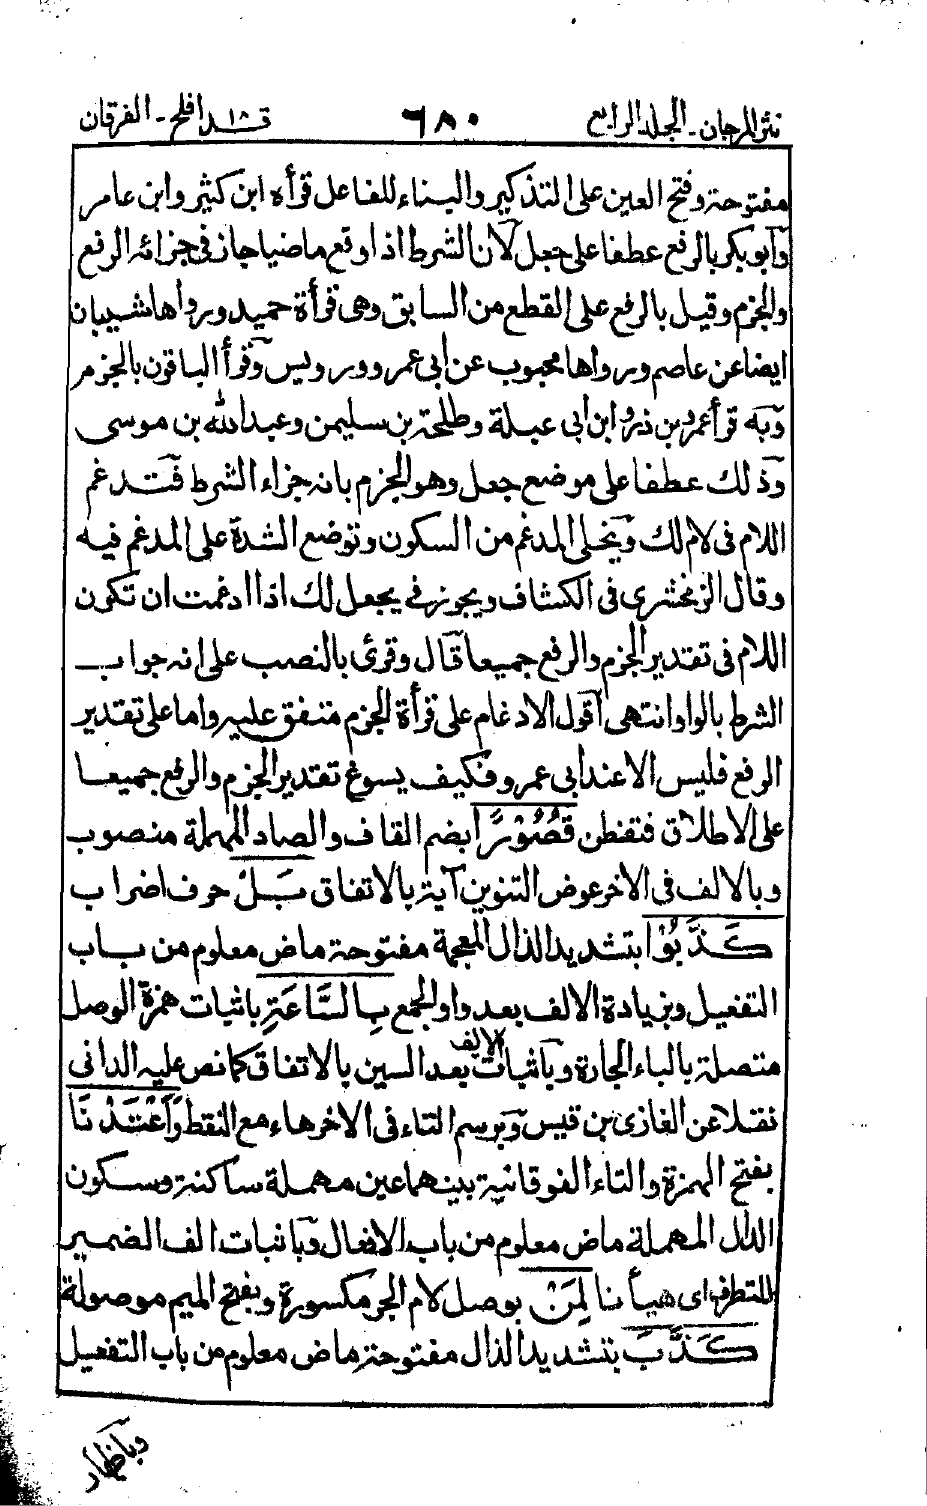 نثر المرجان - الجلد الرابع ٦٨٠ قد افلح ١٨ - الفرقان
مفتوحة وفتح العين على التذكير والبناء للفاعل قرأه ابن كثير وابن عامر
وابو بكر بالرفع عطفا على جعل لان الشرط اذا وقع ماضيا جاز فى جزائه الرفع
والجزم وقيل بالرفع على القطع من السابق وهى قرأة حميد ورواها شيبان
ايضا عن عاصم ورواها محبوب عن ابى عمرو ورويس وقرأ الباقون بالجزم
وبه قرأ عمر بن ذر وابن ابى عبلة وطلحة بن سليمن وعبد الله بن موسى
وذلك عطفا على موضع جعل وهو الجزم بانه جزاء الشرط فتدغم
اللام فى لام لك ويخلى المدغم من السكون وتوضع الشدة على المدغم فيه
وقال الزمخشرى فى الكشاف ويجوز فى يجعل لك اذا ادغمت ان تكون
اللام فى تقدير الجزم والرفع جميعا قال وقرئ بالنصب على انه جواب
الشرط بالواو انتهى اقول الادغام على قرأة الجزم متفق عليه واما على تقدير
الرفع فليس الا عند ابى عمرو فكيف يسوغ تقدير الجزم والرفع جميعا
على الاطلاق فتفطن قُصُوْرًا بضم القاف والصاد المهملة منصوب
وبالالف فى الاخر عوض التنوين آية بالاتفاق بَلْ حرف اضراب
كَذَّبُوْا بتشديد الذال المعجمة مفتوحة ماض معلوم من باب
التفعيل وبزيادة الالف بعد واو الجمع بِالسَّاعَةِ باثبات همزة الوصل
متصلة بالباء الجارة وباثبات الالف بعد السين بالاتفاق كما نص عليه الدانى
نقلا عن الغازى بن قيس وبرسم التاء فى الاخر هاء مع النقط وَاَعْتَدْنَا
بفتح الهمزة والتاء الفوقانية بينهما عين مهملة ساكنة وسكون
الدال المهملة ماض معلوم من باب الافعال وباثبات الف الضمير
للتطرف اى هيأنا لِمَنْ بوصل لام الجر مكسورة وبفتح الميم موصولة
كَذَّبَ بتشديد الذال مفتوحة ماض معلوم من باب التفعيل
وباظهار